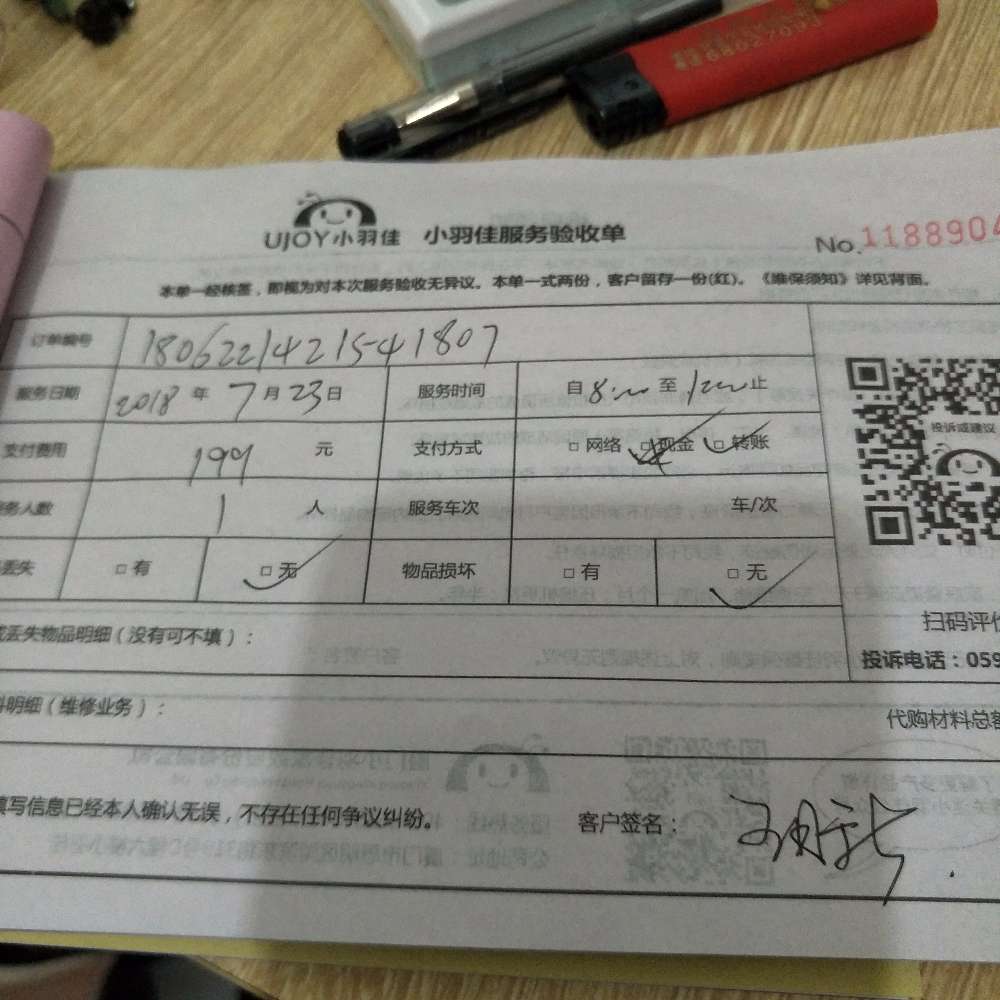 UJOY小羽佳 小羽佳服务验收单
No.1188904
本单一经核签，即视为对本次服务验收无异议。本单一式两份，客户留存一份(红)。《维保须知》详见背面。
订单编号 180622142154 1807
服务日期 2018 年 7 月 23 日 服务时间 自 8:00 至 1200 止
支付费用 199 元 支付方式 □ 网络 □ 现金 □ 转账
务人数 1 人 服务车次 车/次
丢失 □ 有 □ 无 物品损坏 □ 有 □ 无
投诉或建议
扫码评价
投诉电话：059
或丢失物品明细（没有可不填）：
料明细（维修业务）：
代购材料总额
填写信息已经本人确认无误，不存在任何争议纠纷。 客户签名：